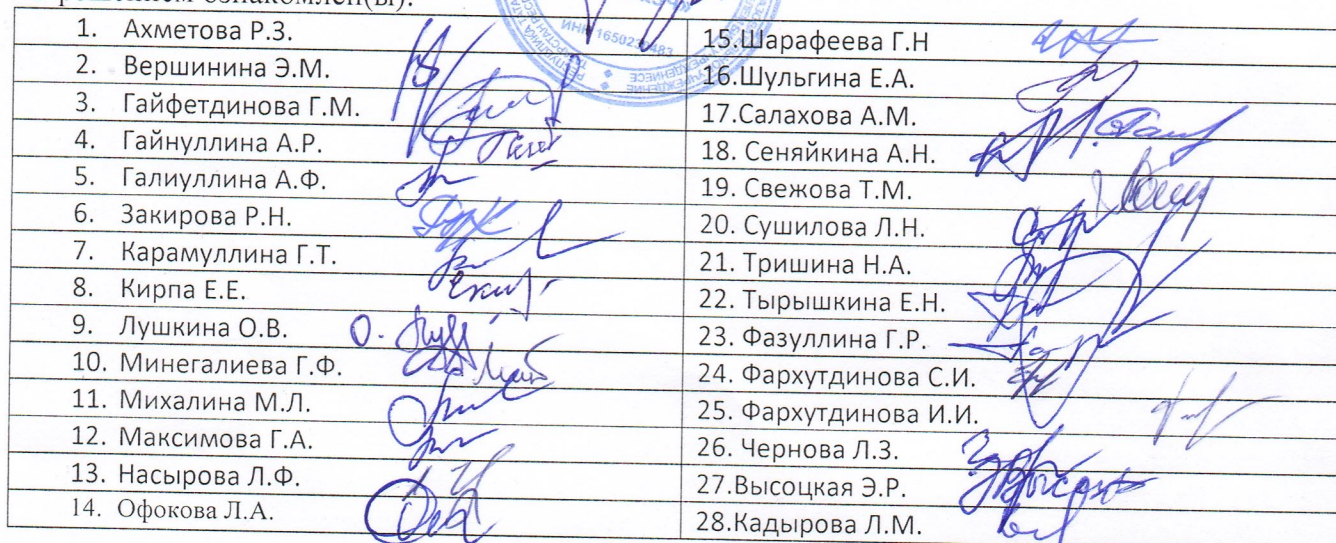 решением ознакомлен(ы):
ИНН 1650
483
1. Ахметова Р.З.
2. Вершинина Э.М.
3. Гайфетдинова Г.М.
4. Гайнуллина А.Р.
5. Галиуллина А.Ф.
6. Закирова Р.Н.
7. Карамуллина Г.Т.
8. Кирпа Е.Е.
9. Лушкина О.В.
10. Минегалиева Г.Ф.
11. Михалина М.Л.
12. Максимова Г.А.
13. Насырова Л.Ф.
14. Офокова Л.А.
15.Шарафеева Г.Н
16.Шульгина Е.А.
17.Салахова А.М.
18. Сеняйкина А.Н.
19. Свежова Т.М.
20. Сушилова Л.Н.
21. Тришина Н.А.
22. Тырышкина Е.Н.
23. Фазуллина Г.Р.
24. Фархутдинова С.И.
25. Фархутдинова И.И.
26. Чернова Л.З.
27.Высоцкая Э.Р.
28.Кадырова Л.М.